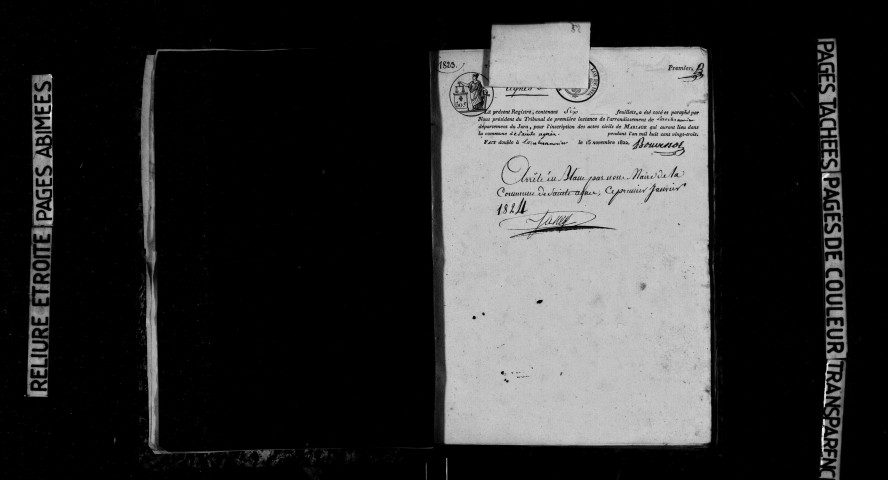 RELIURE ETROITE
PAGES ABIMEES
1823.
Premier,
Le présent Registre, contenant Six feuillets, a été coté et paraphé par
Nous président du Tribunal de première instance de l'arrondissement de
département du Jura, pour l'inscription des actes civils de MARIAGE qui auront lieu dans
la commune de Sainte agnès pendant l'an mil huit cent vingt-trois.
FAIT double à le 15 novembre 1822.
Arrêté en Blanc par nous Maire de la
Commune de Sainte agnès, Ce premier Janvier
1824
PAGES TACHÉES
PAGES DE COULEUR
TRANSPARENC